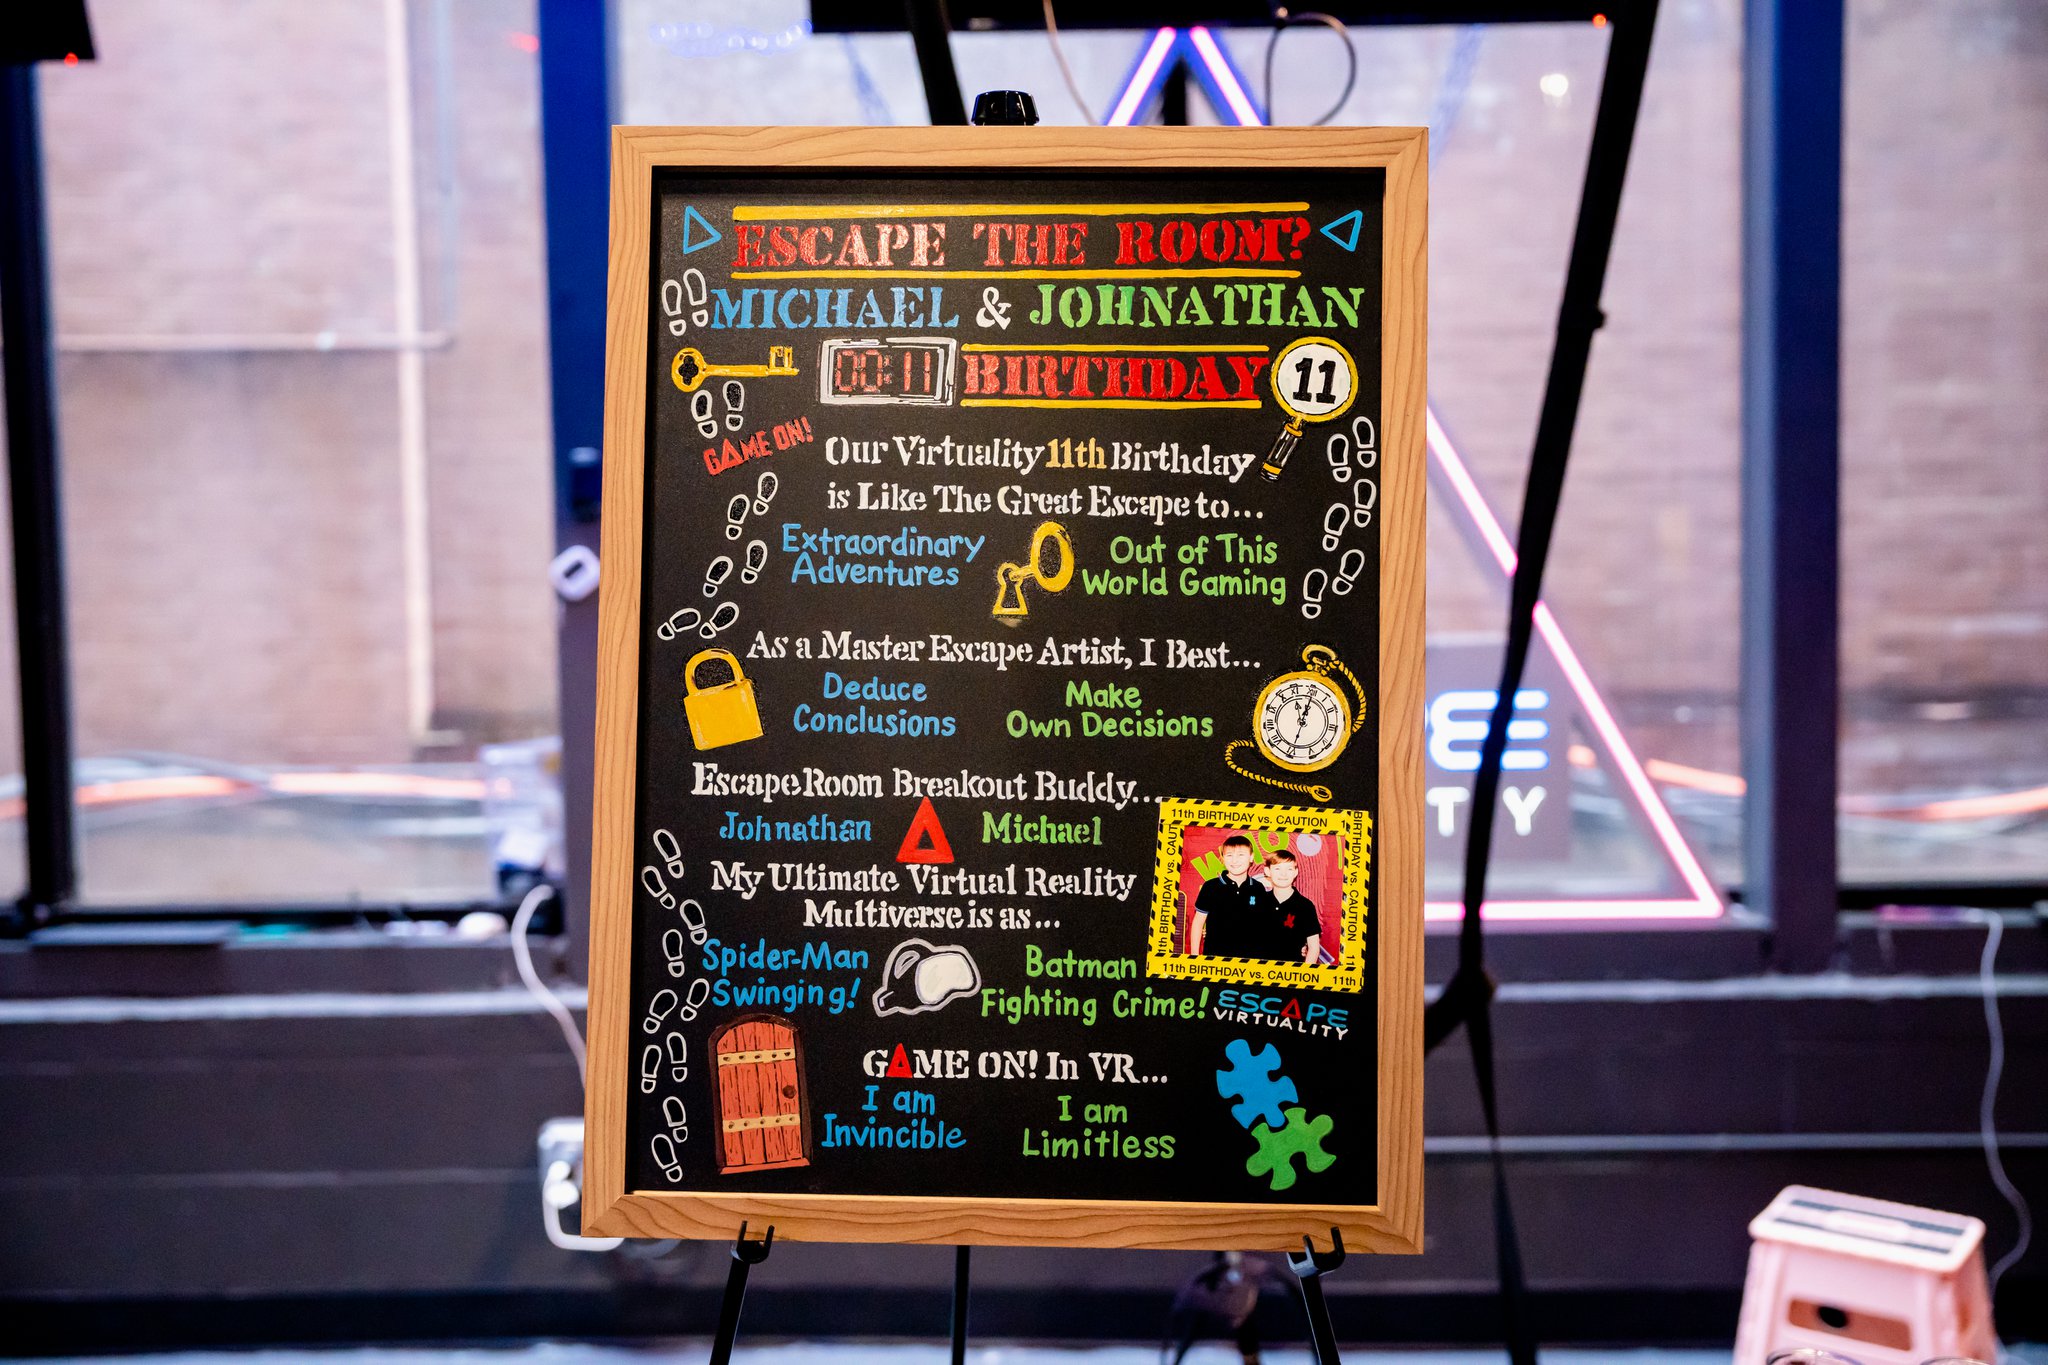 ESCAPE THE ROOM?
MICHAEL & JOHNATHAN
00:11 BIRTHDAY 11
GAME ON!
Our Virtuality 11th Birthday
is Like The Great Escape to...
Extraordinary
Adventures
Out of This
World Gaming
As a Master Escape Artist, I Best...
Deduce
Conclusions
Make
Own Decisions
Escape Room Breakout Buddy...
Johnathan
Michael
11th BIRTHDAY vs. CAUTION
11th BIRTHDAY vs. CAUT
BIRTHDAY vs. CAUTION 11
11th BIRTHDAY vs. CAUTION 11th
My Ultimate Virtual Reality
Multiverse is as...
Spider-Man
Swinging!
Batman
Fighting Crime!
ESCAPE
VIRTUALITY
GAME ON! In VR...
I am
Invincible
I am
Limitless
PE
TY